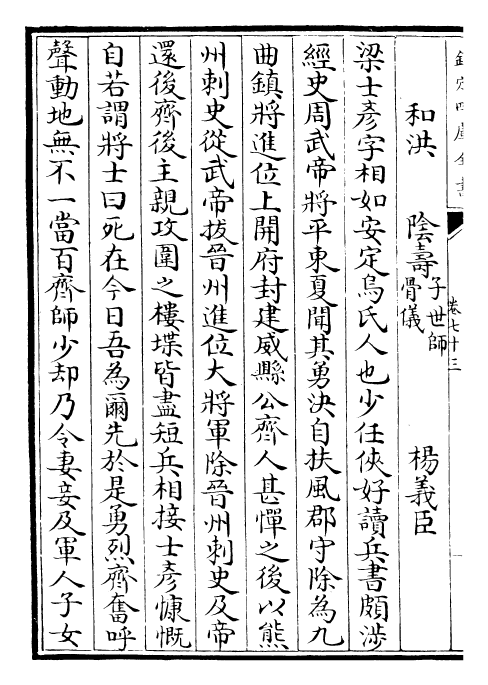 欽定四庫全書
卷七十三
和洪 陰壽 子世師 骨儀 楊義臣
梁士彥字相如安定烏氏人也少任俠好讀兵書頗涉
經史周武帝將平東夏聞其勇決自扶風郡守除為九
曲鎮將進位上開府封建威縣公齊人甚憚之後以熊
州刺史從武帝拔晉州進位大將軍除晉州刺史及帝
還後齊後主親攻圍之樓堞皆盡短兵相接士彥慷慨
自若謂將士曰死在今日吾為爾先於是勇烈齊奮呼
聲動地無不一當百齊師少却乃令妻妾及軍人子女